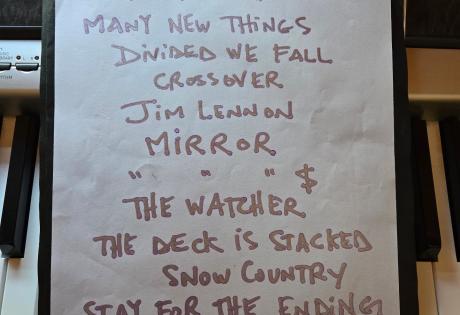 MANY NEW THINGS
DIVIDED WE FALL
CROSSOVER
JIM LENNON
MIRROR
" " " $
THE WATCHER
THE DECK IS STACKED
SNOW COUNTRY
STAY FOR THE ENDING